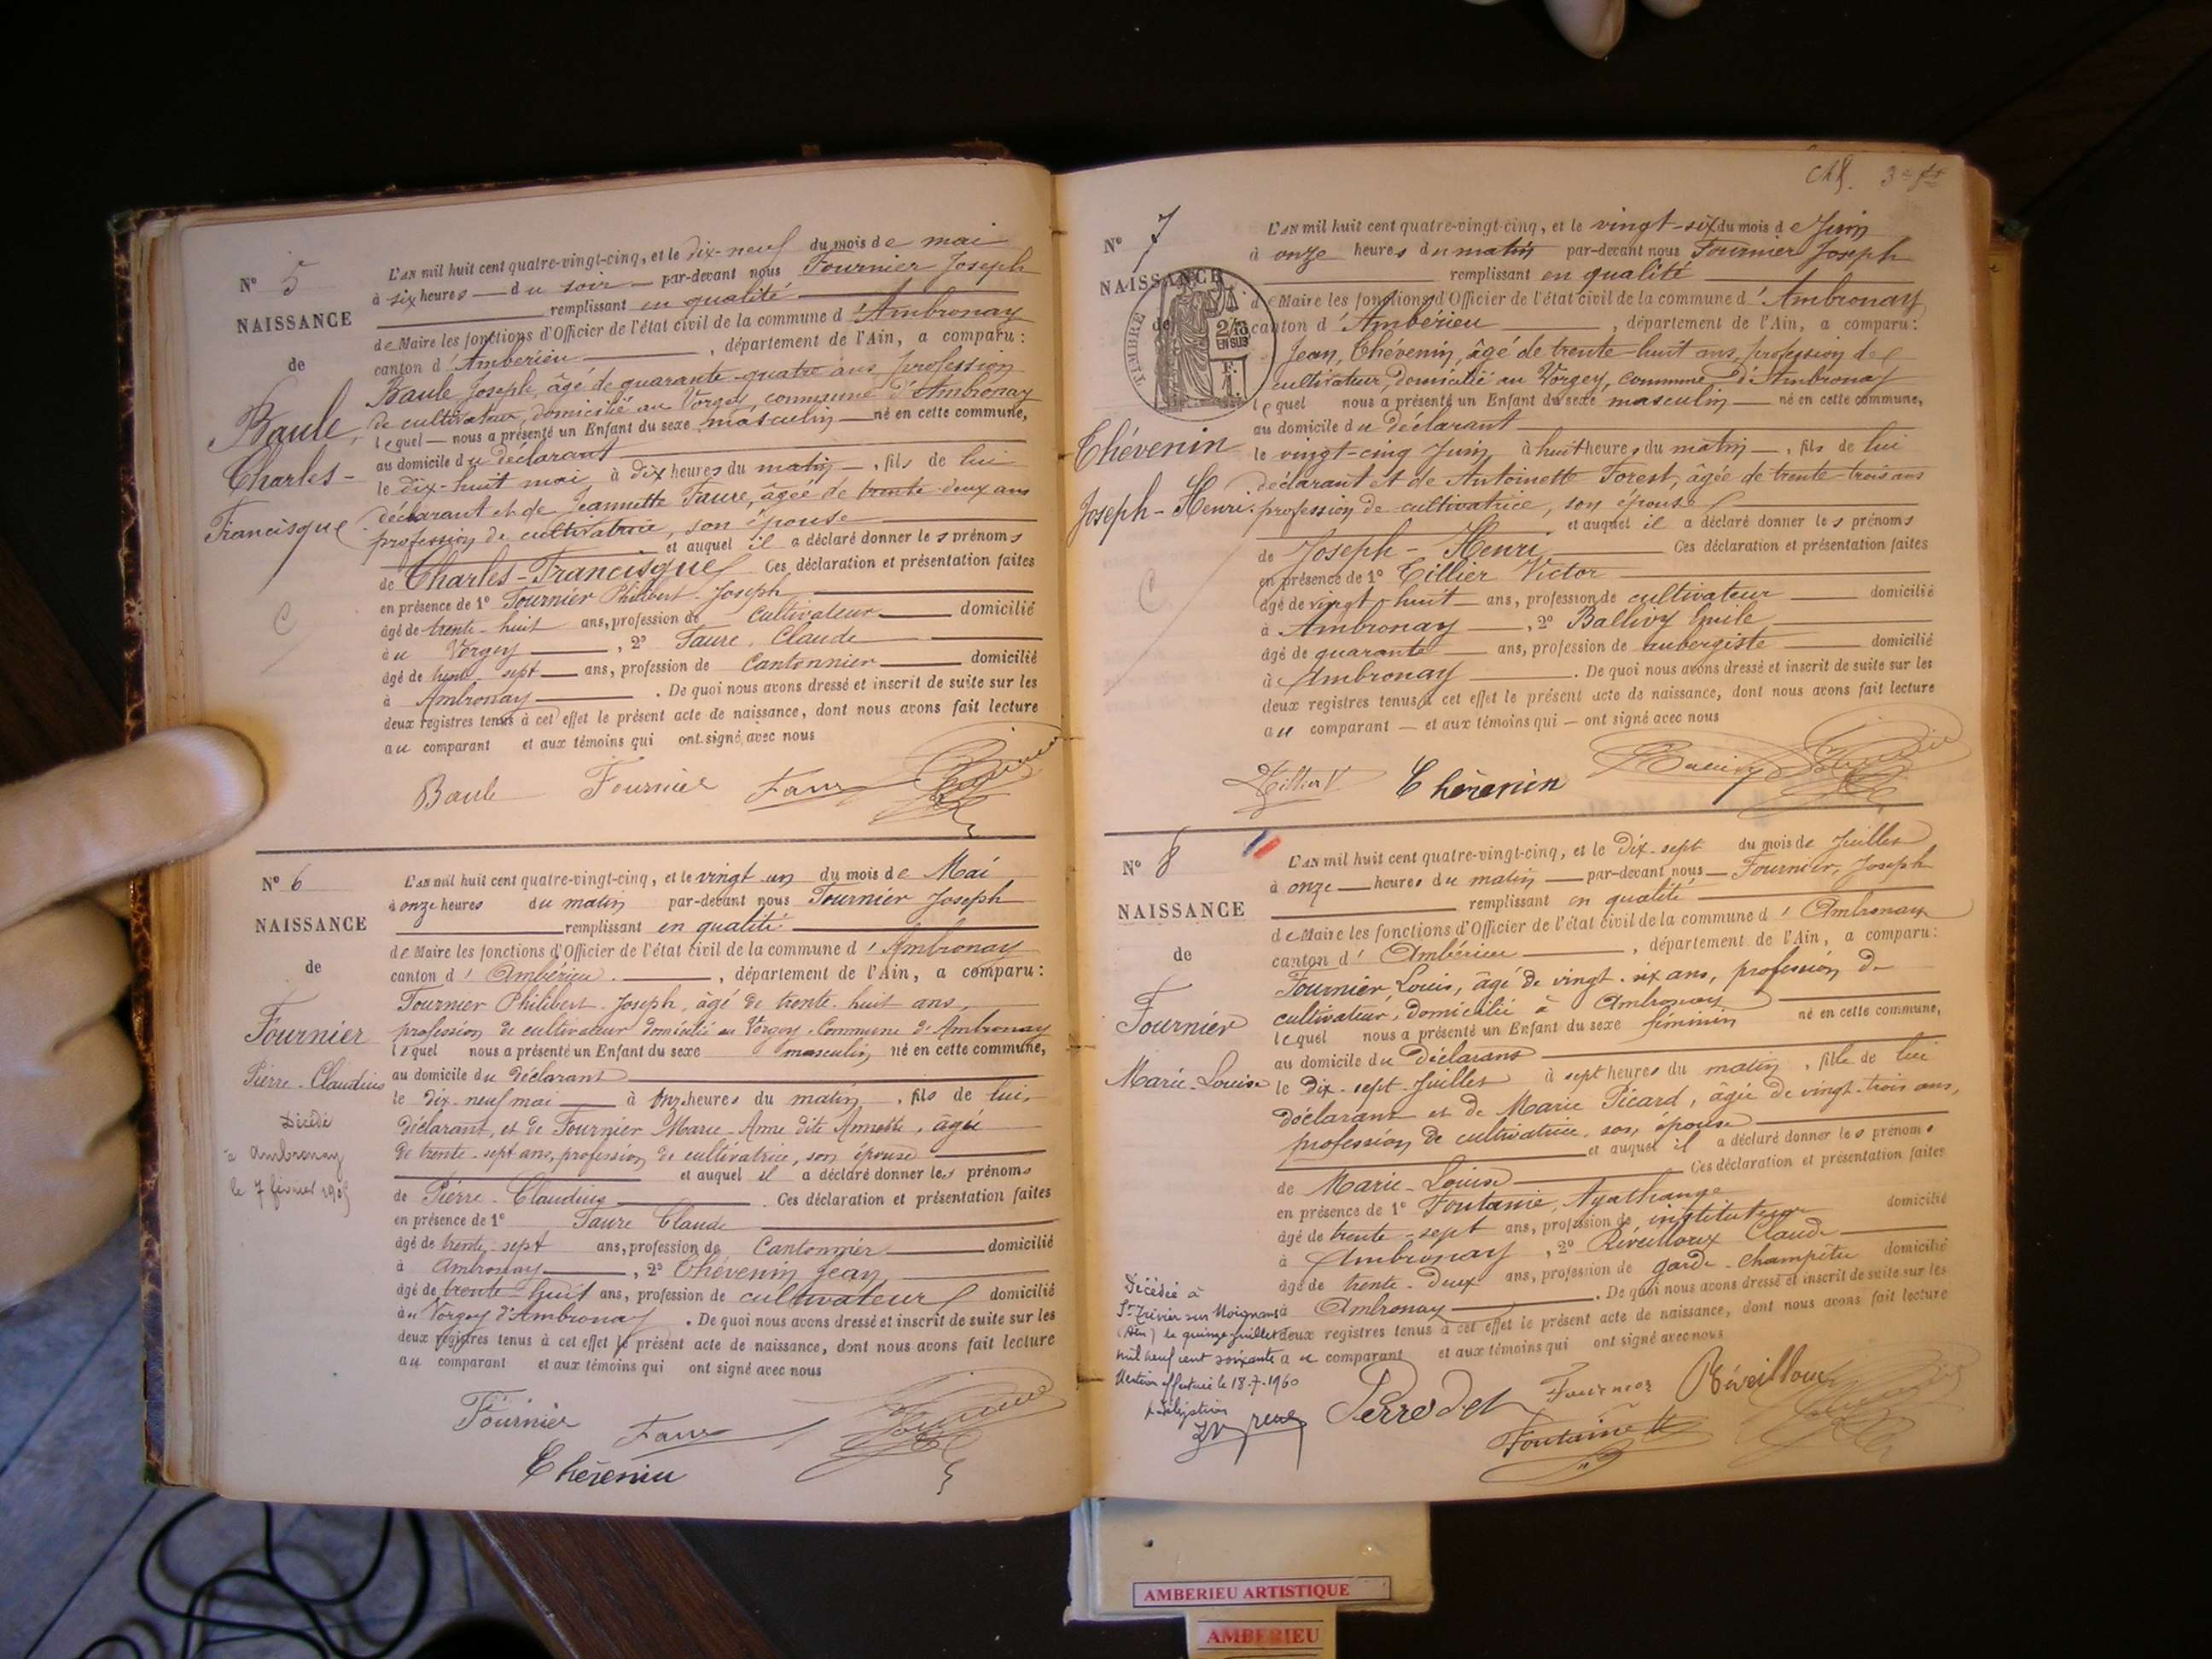 N° 5
NAISSANCE
de
Baule,
Charles-
Francisque
L'AN mil huit cent quatre-vingt-cinq, et le dix-neuf du mois de mai
à six heures du soir par-devant nous Fournier Joseph
remplissant en qualité
de Maire les fonctions d'Officier de l'état civil de la commune d'Ambronay
canton d'Ambérieu, département de l'Ain, a comparu:
Baule Joseph, âgé de quarante-quatre ans, profession
de cultivateur, domicilié au Vorgey, commune d'Ambronay
lequel nous a présenté un Enfant du sexe masculin né en cette commune,
au domicile du déclarant
le dix-huit mai, à dix heures du matin, fils de lui
déclarant et de Jeannette Faure, âgée de trente-deux ans
profession de cultivatrice, son épouse
et auquel il a déclaré donner les prénoms
de Charles-Francisque Ces déclaration et présentation faites
en présence de 1° Fournier Philibert-Joseph
âgé de trente-huit ans, profession de cultivateur domicilié
au Vorgey, 2° Faure Claude
âgé de trente-sept ans, profession de Cantonnier domicilié
à Ambronay. De quoi nous avons dressé et inscrit de suite sur les
deux registres tenus à cet effet le présent acte de naissance, dont nous avons fait lecture
au comparant et aux témoins qui ont signé avec nous
Baule Fournier Faure
N° 6
NAISSANCE
de
Fournier
Pierre-Claudius
Décédé
à Ambronay
le 7 février
L'AN mil huit cent quatre-vingt-cinq, et le vingt un du mois de Mai
à onze heures du matin par-devant nous Fournier Joseph
remplissant en qualité
de Maire les fonctions d'Officier de l'état civil de la commune d'Ambronay
canton d'Ambérieu, département de l'Ain, a comparu:
Fournier Philibert-Joseph, âgé de trente-huit ans,
profession de cultivateur domicilié au Vorgey, Commune d'Ambronay
lequel nous a présenté un Enfant du sexe masculin, né en cette commune,
au domicile du déclarant
le dix-neuf mai à onze heures du matin, fils de lui,
déclarant, et de Fournier Marie-Anne dite Annette, âgée
de trente-sept ans, profession de cultivatrice, son épouse
et auquel il a déclaré donner les prénoms
de Pierre-Claudius. Ces déclaration et présentation faites
en présence de 1° Faure Claude
âgé de trente-sept ans, profession de Cantonnier domicilié
à Ambronay, 2° Thévenin Jean
âgé de trente-huit ans, profession de cultivateur domicilié
au Vorgey d'Ambronay. De quoi nous avons dressé et inscrit de suite sur les
deux registres tenus à cet effet le présent acte de naissance, dont nous avons fait lecture
au comparant et aux témoins qui ont signé avec nous
Fournier Faure
Thévenin
3e
N° 7
NAISSANCE
de
TIMBRE
2/10
EN SUS
Thévenin
Joseph-Henri
L'AN mil huit cent quatre-vingt-cinq, et le vingt-six du mois de Juin
à onze heures du matin par-devant nous Fournier Joseph
remplissant en qualité
de Maire les fonctions d'Officier de l'état civil de la commune d'Ambronay
canton d'Ambérieu, département de l'Ain, a comparu:
Jean Thévenin, âgé de trente-huit ans, profession de
cultivateur, domicilié au Vorgey, commune d'Ambronay
lequel nous a présenté un Enfant du sexe masculin né en cette commune,
au domicile du déclarant
le vingt-cinq Juin à huit heures du matin, fils de lui
déclarant et de Antoinette Forest, âgée de trente-trois ans
profession de cultivatrice, son épouse
et auquel il a déclaré donner les prénoms
de Joseph-Henri Ces déclaration et présentation faites
en présence de 1° Tillier Victor
âgé de vingt-huit ans, profession de cultivateur domicilié
à Ambronay, 2° Ballivy Emile
âgé de quarante ans, profession de aubergiste domicilié
à Ambronay. De quoi nous avons dressé et inscrit de suite sur les
deux registres tenus à cet effet le présent acte de naissance, dont nous avons fait lecture
au comparant et aux témoins qui ont signé avec nous
Tillier V Thévenin
N° 8
NAISSANCE
de
Fournier
Marie-Louise
L'AN mil huit cent quatre-vingt-cinq, et le Dix-sept du mois de Juillet
à onze heures du matin par-devant nous Fournier, Joseph
remplissant en qualité
de Maire les fonctions d'Officier de l'état civil de la commune d'Ambronay
canton d'Ambérieu, département de l'Ain, a comparu:
Fournier Louis, âgé de vingt-six ans, profession de
cultivateur, domicilié à Ambronay
lequel nous a présenté un Enfant du sexe féminin né en cette commune,
au domicile du Déclarant
le Dix-sept Juillet à sept heures du matin, fille de lui
déclarant et de Marie Picard, âgée de vingt-trois ans,
profession de cultivatrice, son épouse
et auquel il a déclaré donner les prénoms
de Marie-Louise Ces déclaration et présentation faites
en présence de 1° Fontaine, Agathange
âgé de trente-sept ans, profession de instituteur domicilié
à Ambronay, 2° Réveilloux Claude
âgé de trente-deux ans, profession de garde-champêtre domicilié
à Ambronay. De quoi nous avons dressé et inscrit de suite sur les
deux registres tenus à cet effet le présent acte de naissance, dont nous avons fait lecture
au comparant et aux témoins qui ont signé avec nous
Décédée à
St Trivier sur Moignans
(Ain) le quinze juillet
mil neuf cent soixante
Mention effectuée le 18-7-1960
Perrodet Fournier Réveilloux
Fontaine
AMBERIEU ARTISTIQUE
AMBERIEU